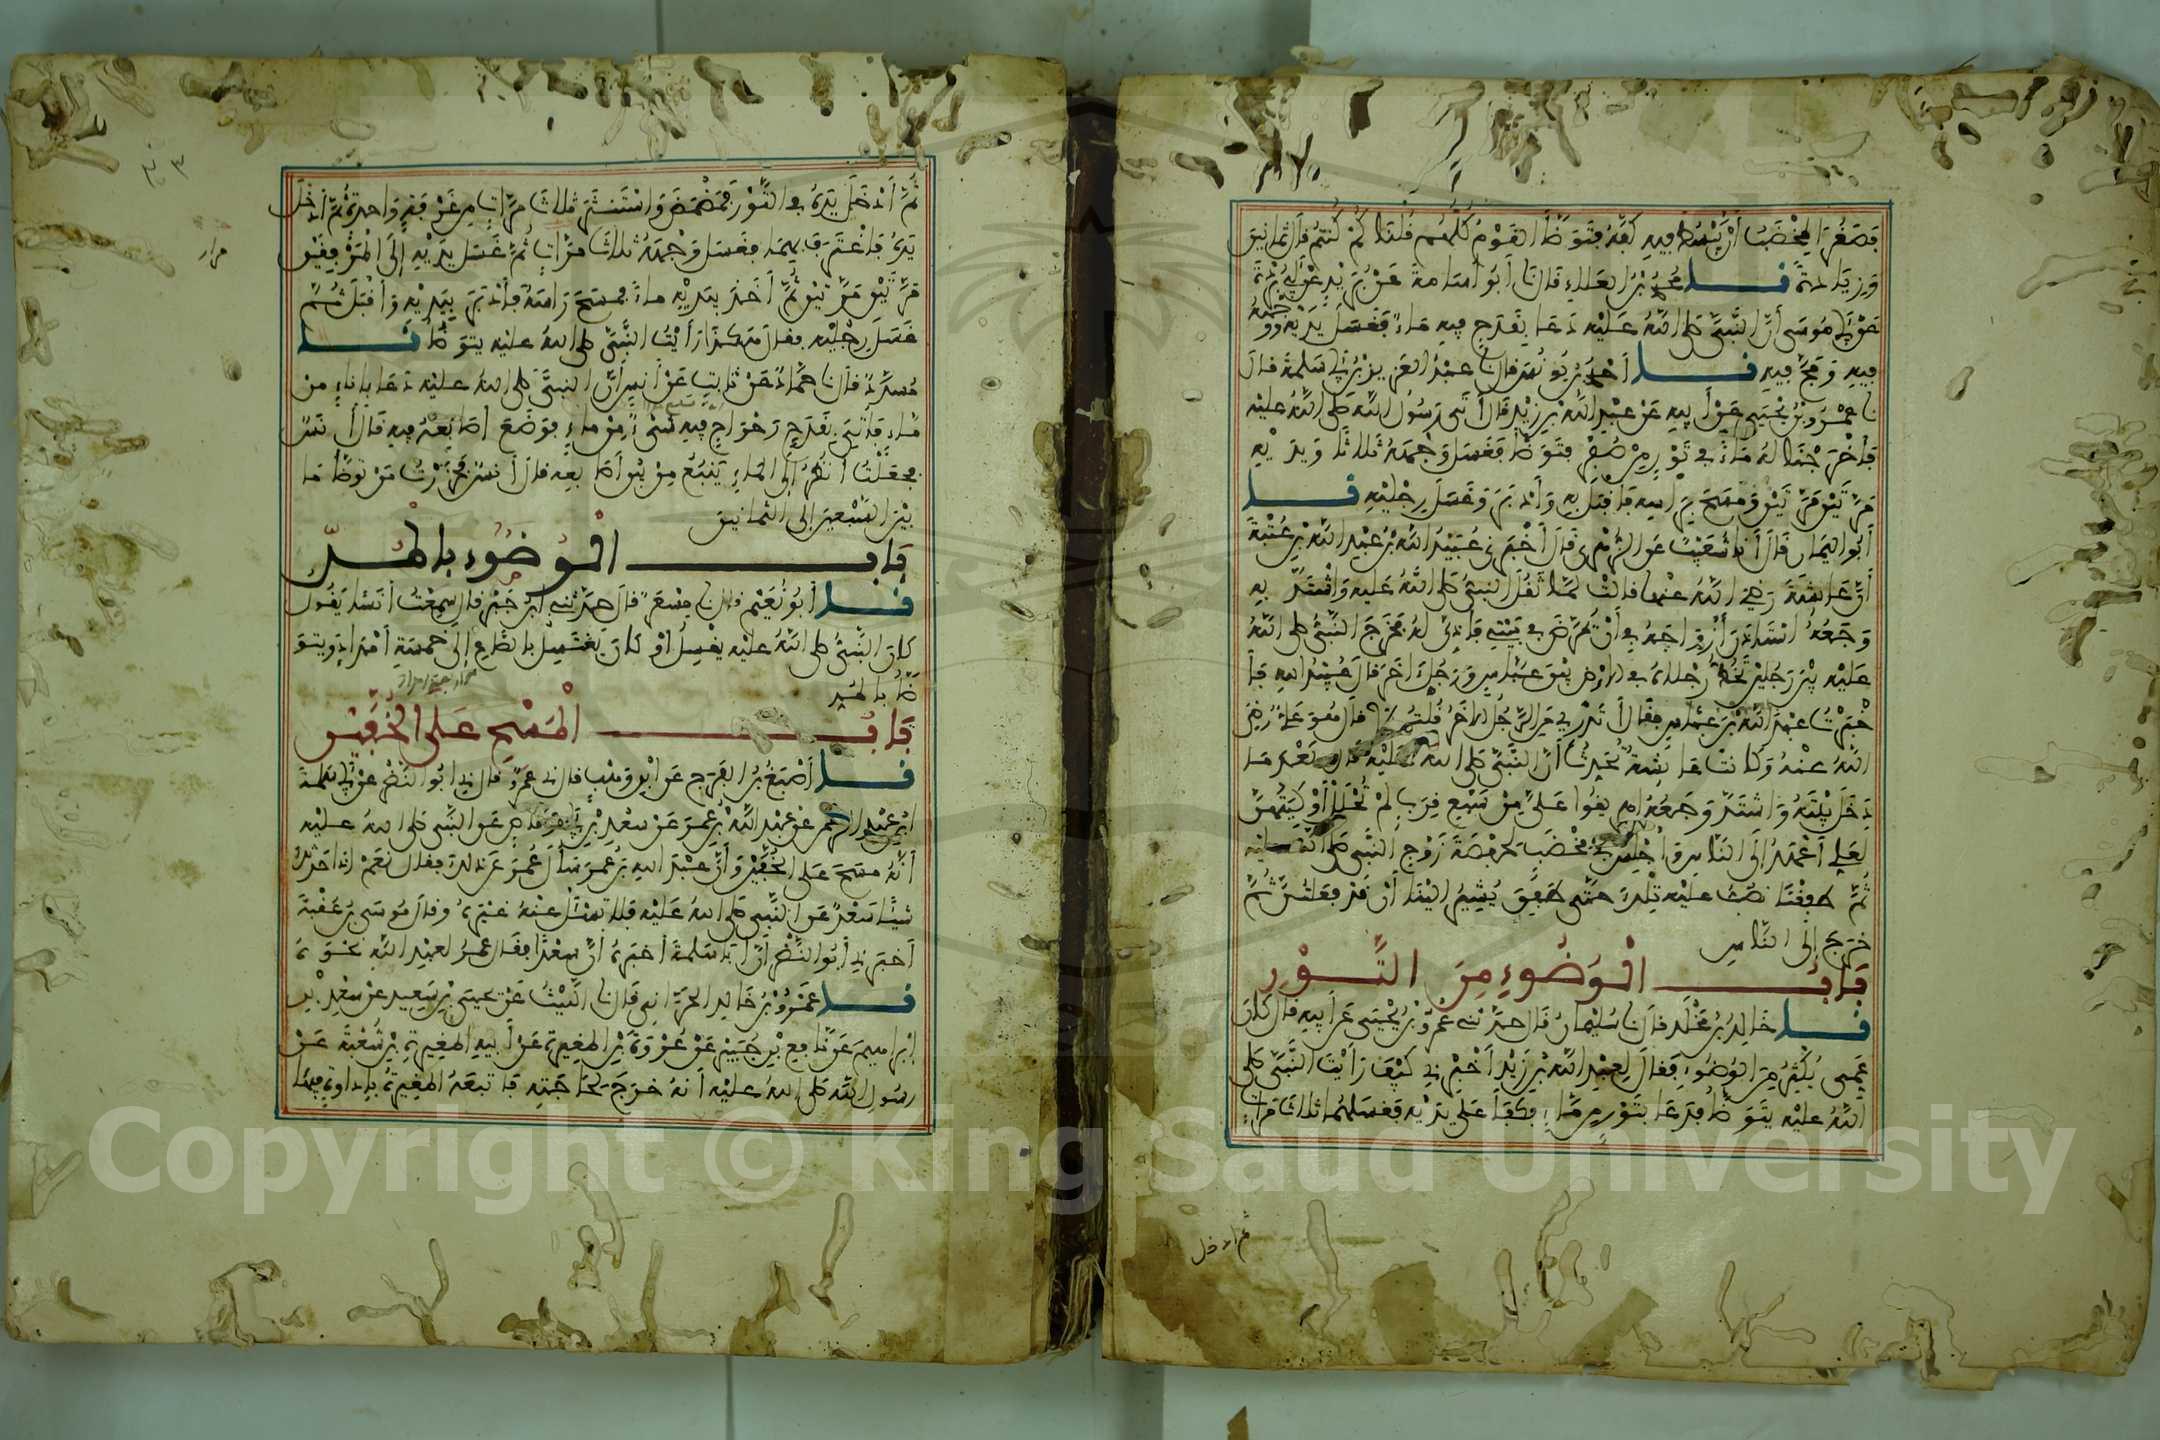 فصغر المخضب أن يبسط فيه كفه فتوضأ القوم كلهم قلنا كم كنتم قال ثمانين
وزيادة نا محمد بن العلاء قال نا أبو أسامة عن بريد عن أبي بردة
عن أبي موسى أن النبي صلى الله عليه دعا بقدح فيه ماء فغسل يديه ووجهه
فيه ومج فيه نا أحمد بن يونس قال نا عبد العزيز بن أبي سلمة قال
نا عمرو بن يحيى عن أبيه عن عبد الله بن زيد قال أتى رسول الله صلى الله عليه
فأخرجنا له ماء في تور من صفر فتوضأ فغسل وجهه ثلاثا ويديه
مرتين مرتين ومسح برأسه فأقبل به وأدبر وغسل رجليه نا
أبو اليمان قال أنا شعيب عن الزهري قال أخبرني عبيد الله بن عبد الله بن عتبة
أن عائشة رضي الله عنها قالت لما ثقل النبي صلى الله عليه واشتد به
وجعه استأذن أزواجه في أن يمرض في بيتي فأذن له فخرج النبي صلى الله
عليه بين رجلين تخط رجلاه في الأرض بين عباس ورجل آخر قال عبيد الله فأ
خبرت عبد الله بن عباس فقال أتدري من الرجل الآخر قلت لا قال هو علي رضي
الله عنه وكانت عائشة تحدث أن النبي صلى الله عليه قال بعد ما
دخل بيته واشتد وجعه اهريقوا علي من سبع قرب لم تحلل أوكيتهن
لعلي أعهد إلى الناس وأجلس في مخضب لحفصة زوج النبي صلى الله عليه
ثم طفقنا نصب عليه تلك حتى طفق يشير الينا أن قد فعلتن ثم
خرج إلى الناس
باب الوضوء من التور
نا خالد بن مخلد قال نا سليمان قال حدثني عمرو بن يحيى عن أبيه قال كان
عمي يكثر من الوضوء فقال لعبد الله بن زيد أخبرني كيف رأيت النبي صلى
الله عليه يتوضأ فدعا بتور من ماء فكفأ على يديه فغسلهما ثلاث مرات
ثم ادخل
ثم أدخل يده في التور فمضمض واستنثر ثلاث مرات من غرفة واحدة ثم أدخل
يده فاغترف بها فغسل وجهه ثلاث مرات ثم غسل يديه إلى المرفقين
مرتين مرتين ثم أخذ بيديه ماء فمسح رأسه فأدبر بيديه وأقبل ثم
غسل رجليه فقال هكذا رأيت النبي صلى الله عليه يتوضأ نا
مسدد قال نا حماد عن ثابت عن أنس أن النبي صلى الله عليه دعا بإناء من
ماء فأتي بقدح رحراح فيه شيء من ماء فوضع أصابعه فيه قال أنس
فجعلت أنظر إلى الماء ينبع من بين أصابعه قال أنس فحزرت من توضأ ما
بين السبعين إلى الثمانين
باب الوضوء بالمد
نا أبو نعيم قال نا مسعر قال حدثني ابن جبر قال سمعت أنسا يقول
كان النبي صلى الله عليه يغسل أو كان يغتسل بالصاع إلى خمسة أمداد ويتو
ضأ بالمد
باب المسح على الخفين
نا أصبغ بن الفرج عن ابن وهب قال ني عمرو قال ني أبو النضر عن أبي سلمة
ابن عبد الرحمن عن عبد الله بن عمر عن سعد بن أبي وقاص عن النبي صلى الله عليه
أنه مسح على الخفين وأن عبد الله بن عمر سأل عمر عن ذلك فقال نعم إذا حدثك
شيئا سعد عن النبي صلى الله عليه فلا تسئل عنه غيره وقال موسى بن عقبة
أخبرني أبو النضر أن أبا سلمة أخبره أن سعدا فقال عمر لعبد الله نحوه
نا عمرو بن خالد الحراني قال نا الليث عن يحيى بن سعيد عن سعد بن
إبراهيم عن نافع بن جبير عن عروة بن المغيرة عن أبيه المغيرة بن شعبة عن
رسول الله صلى الله عليه أنه خرج لحاجته فاتبعه المغيرة بإداوة فيها